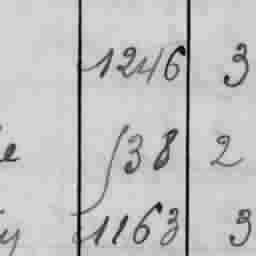 1246 3
e 138 2
y 1163 3